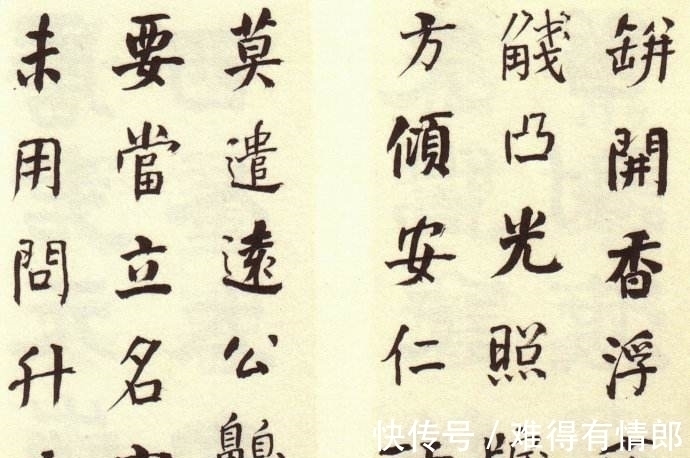 缾開香浮
凸光照
方傾安仁
莫遣遠公
要當立名
未用問升
快传号 / 难得有情郎